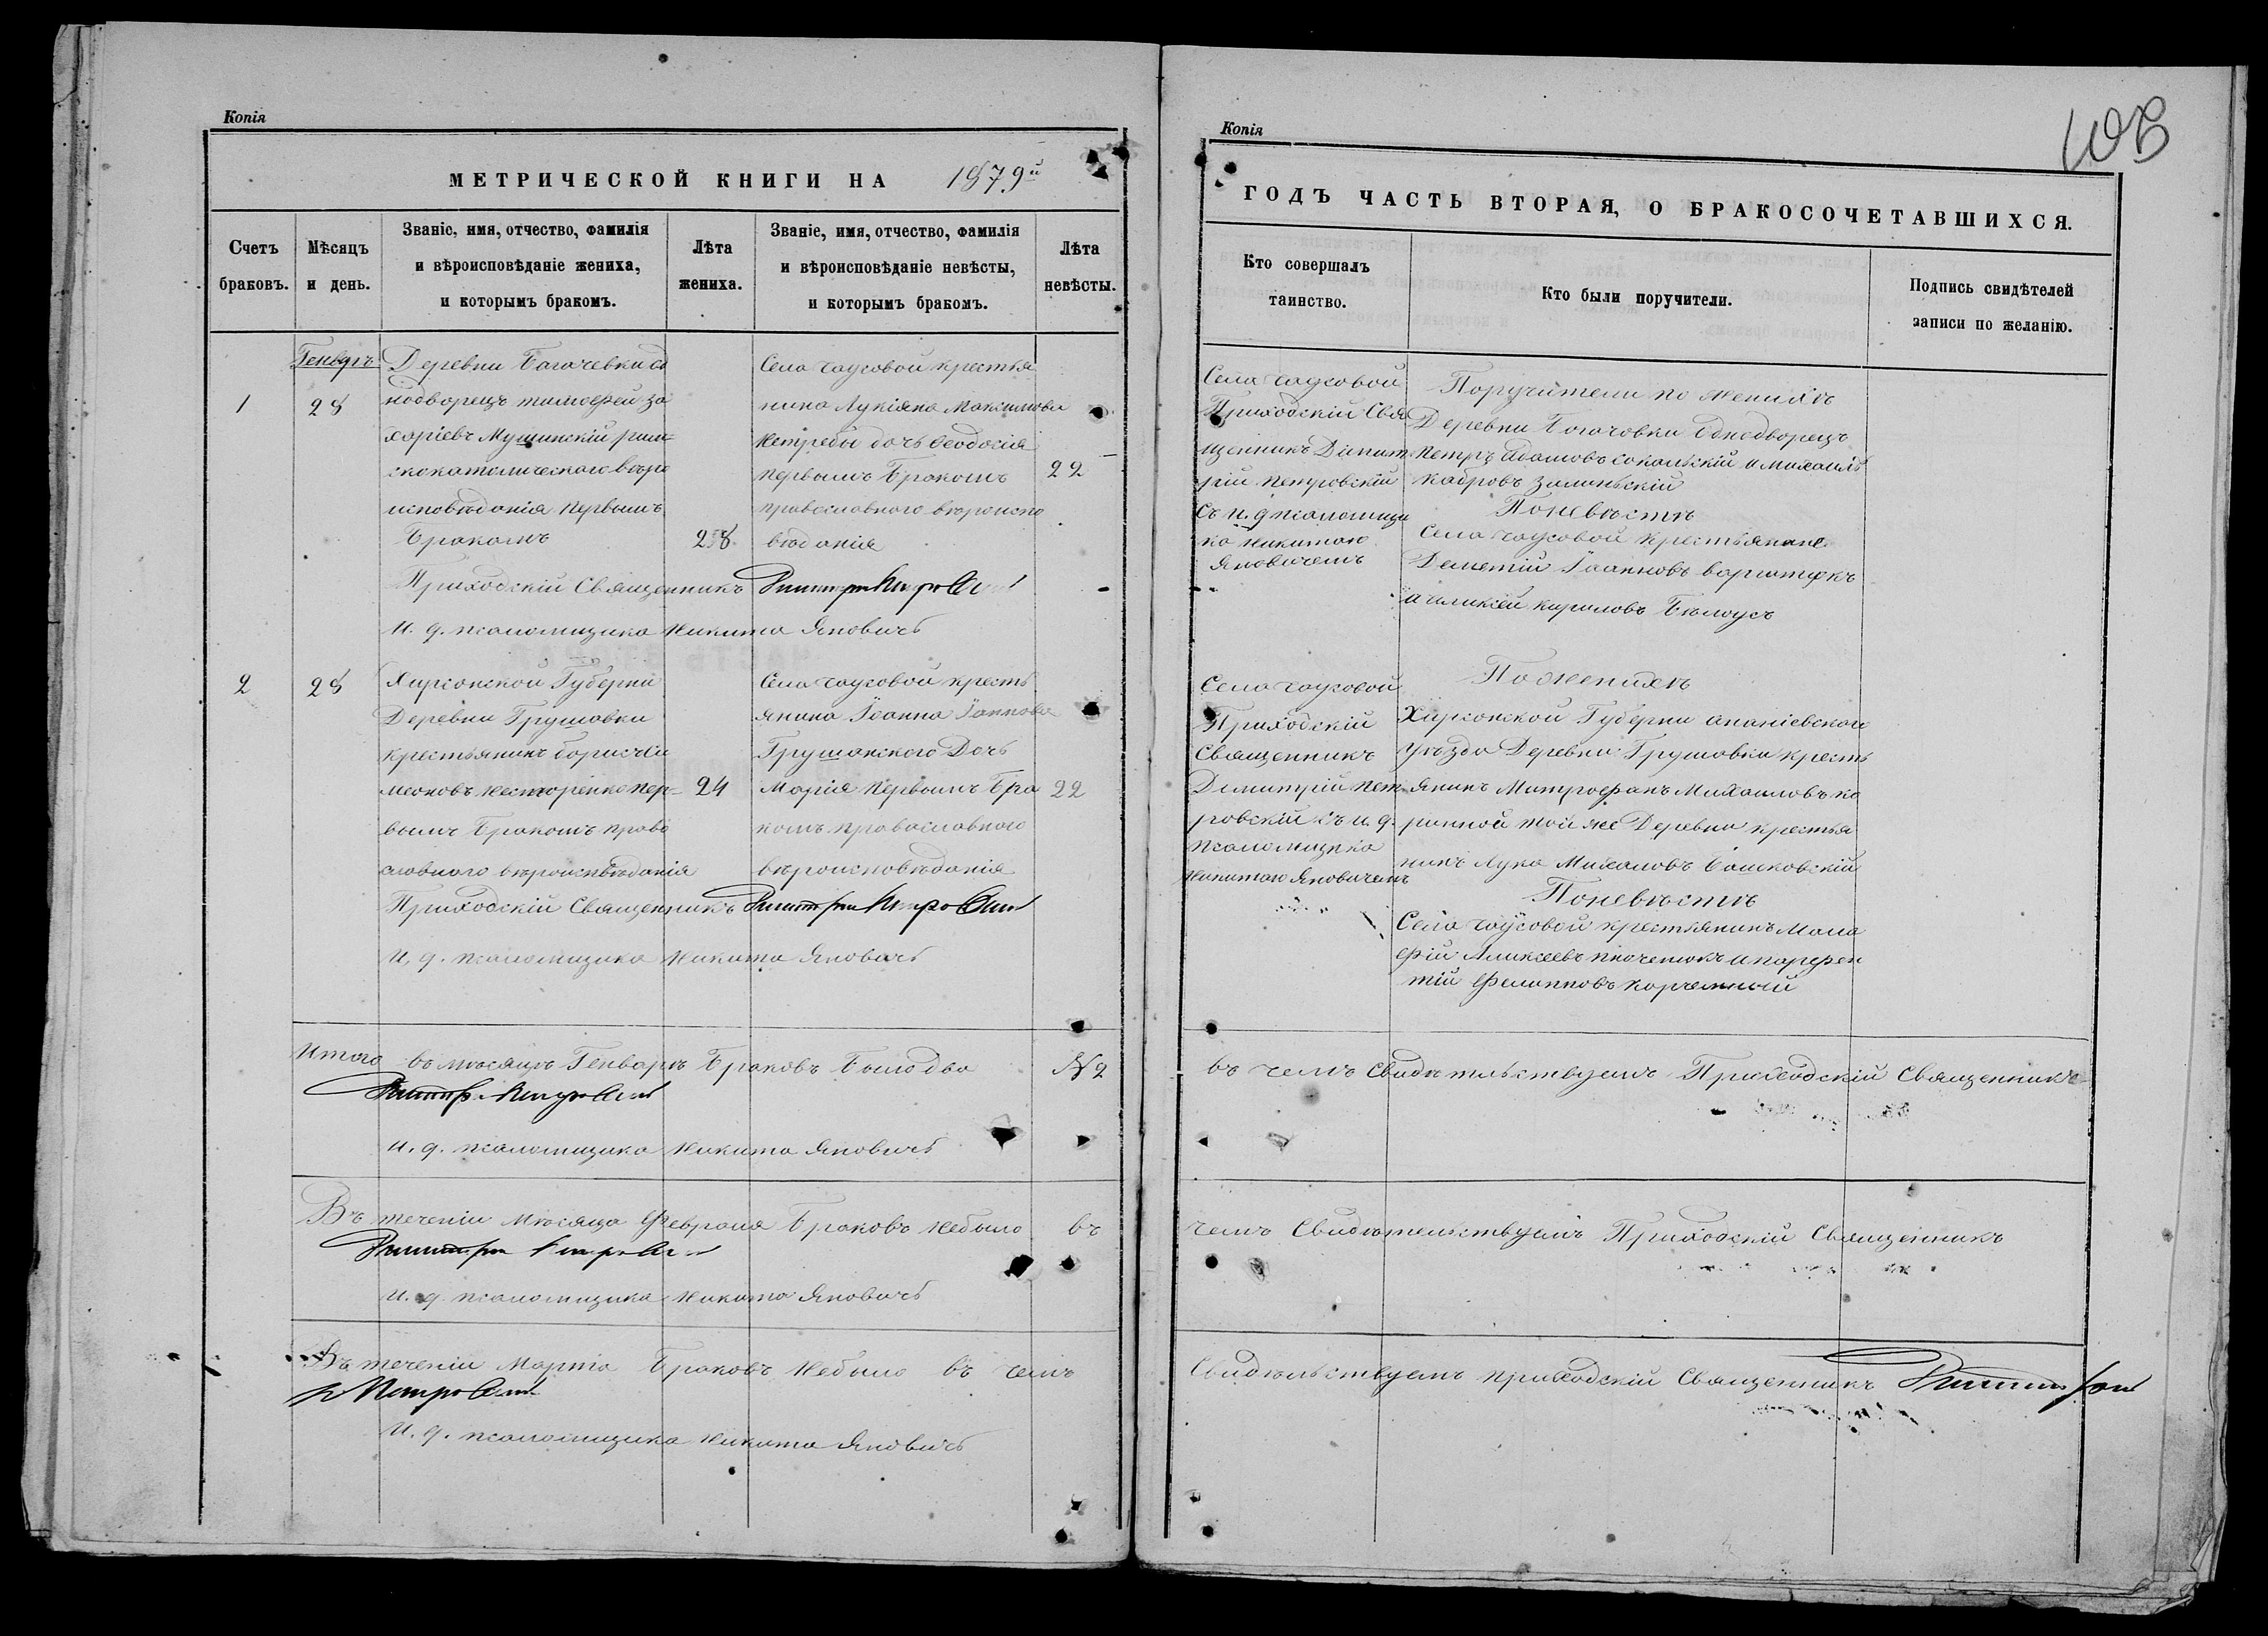 Копія
МЕТРИЧЕСКОЙ КНИГИ НА 1879й
Счетъ браковъ.
Мѣсяцъ и день.
Званіе, имя, отчество, фамилія
и вѣроисповѣданіе жениха,
и которымъ бракомъ.
Лѣта жениха.
Званіе, имя, отчество, фамилія
и вѣроисповѣданіе невѣсты,
и которымъ бракомъ.
Лѣта невѣсты.
Генварь
1
28
Деревни Богачевки од
нодворецъ тимофей за
харіевъ Мушинскій рим=
скокатолическаго вѣро
исповѣданія первымъ
Бракомъ
28
Села чаусовой крестья
нина Лукіяна Максимова
Нетребы дочь Ѳеодосія
первымъ Бракомъ
православнаго вѣроиспо
вѣданія
22
Приходскій Священникъ Димитрій Петровскій
И. д. псаломщика Никита Яновичъ
2
28
Хирсонской Губерніи
Деревни Грушовки
крестьянинъ борисъ Си
меоновъ Несторенко пер=
вымъ Бракомъ право
славного вѣроисповѣданія
24
Села чаусовой кресть
янина Іоанна Іаннова
Грушанского Дочь
Марія Первымъ Бра
комъ православного
вѣроисповѣданія
22
Приходскій Священникъ Димитрій Петровскій
И. д. псаломщика Никита Яновичъ
Итого въ мѣсяцѣ Генварѣ Браковъ Было два № 2
Димитрій Петровскій
И. д. псаломщика Никита Яновичъ
Въ теченіи Мѣсяца Февраля Браковъ небыло въ
Димитрій Петровскій
И. д. псаломщика Никита Яновичъ
Въ теченіи Марта Браковъ Небыло въ чемъ
Петровскій
И. д. псаломщика Никита Яновичъ
Копія
ГОДЪ ЧАСТЬ ВТОРАЯ, О БРАКОСОЧЕТАВШИХСЯ.
Кто совершалъ таинство.
Кто были поручители.
Подпись свидѣтелей
записи по желанію.
Села чаусовой
Приходскій Свя
щенникъ Димит
рій Петровскій
Съ и. д. псаломщи
ка Никитою
Яновичемъ
Поручители по Женихѣ
Деревни Богачовки Однодворецъ
Петръ Адамовъ сокальскій и Михаилъ
По невѣстѣ
Села чаусовой крестьяне
Дементій Іаанновъ
и Аликсей кириловъ Бѣлоусъ
Села чаусовой
Приходскій
Священникъ
Димитрій Пет
ровскій съ и. д.
псаломщика
Никитою Яновичемъ
По Женихѣ
Хирсонской Губерни ананіевского
уѣзда Деревни Грушовки кресть
янинъ Митрофанъ Михаиловъ ко
той же Деревни крестья
нинъ Лука Михаловъ
По невѣстѣ
Села чаусовой крестьянинъ Мака
рій Аликсеевъ и парфен
тій Филипповъ
въ чемъ Свидѣтельствуемъ Приходскій Священникъ
чемъ Свидѣтельствуемъ Приходскій Священникъ
Свидѣльствуемъ приходскій Священникъ Димитрій